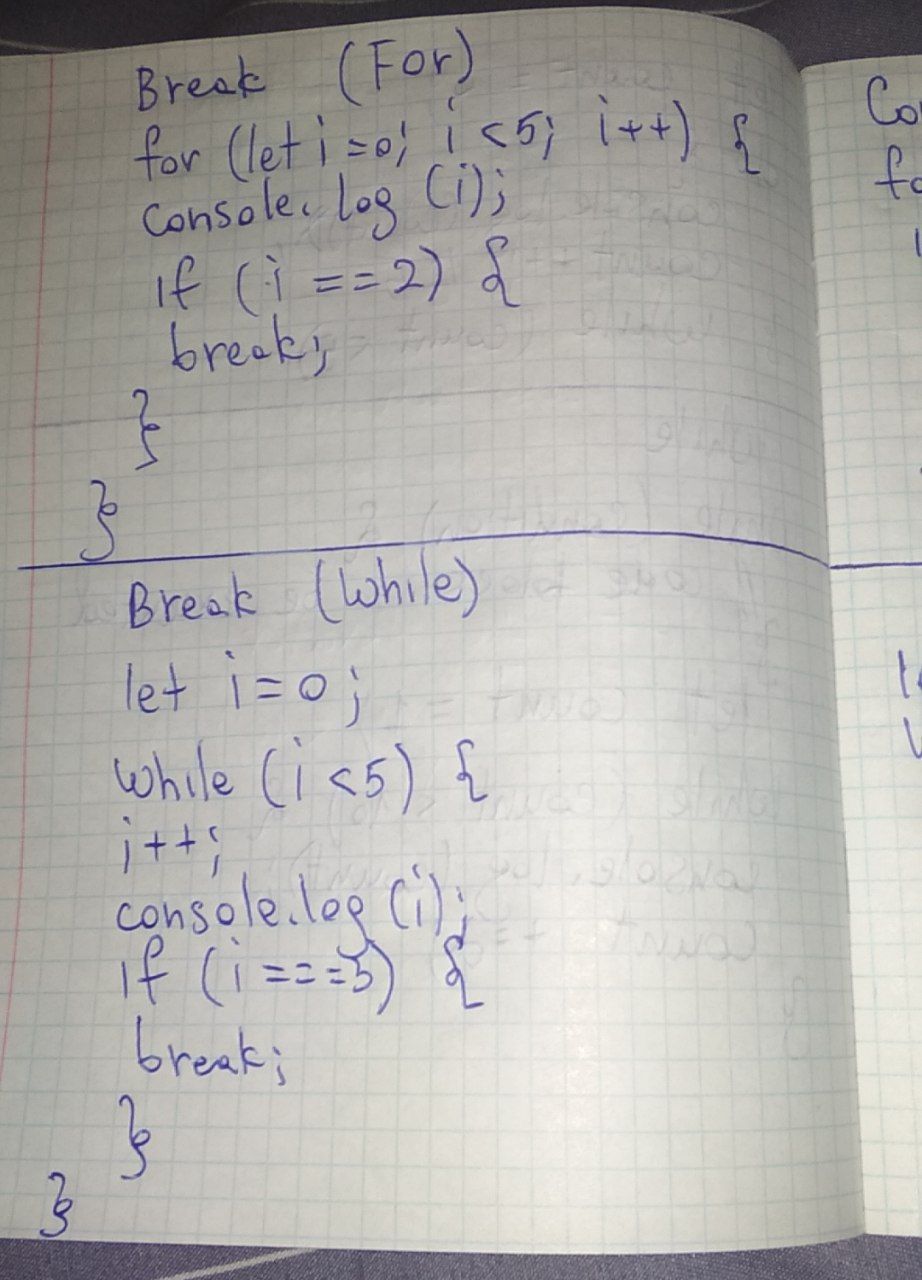 Break (For)
for (let i=0; i<5; i++) {
console.log (i);
if (i ==2) {
break;
}
}
Break (While)
let i=0;
while (i<5) {
i++;
console.log (i);
if (i ===3) {
break;
}
}